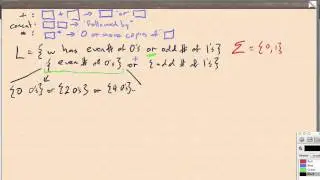 + : □ + □ → □ "or" □
concat: □ □ → "followed by"
* : □* → 0 or more copies of □
L = { w has even # of 0's or odd # of 1's } Σ = {0,1}
{ even # of 0's } + or { odd # of 1's }
{0 0's} or {2 0's} or {4 0's} ...